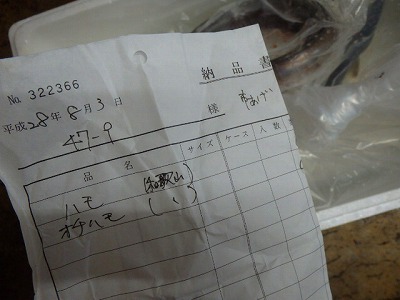 No. 322366
納品書
平成28年8月3日
様
47-9
品名 サイズ ケース 入数
ハモ (和歌山)
オチハモ (〃)